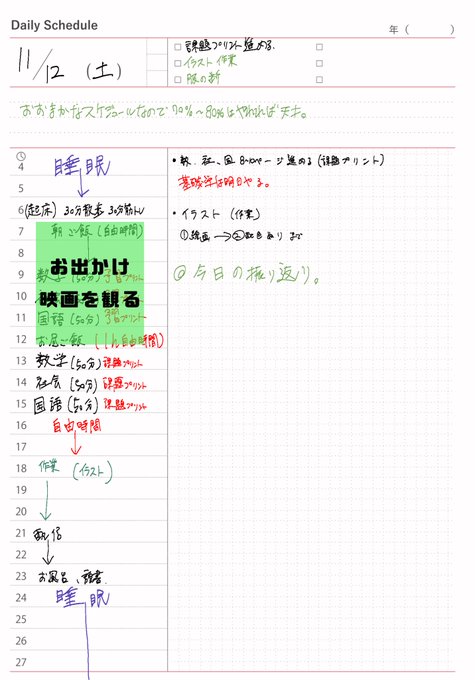 Daily Schedule
年（　　）
11/12（土）
□ 課題プリント進める。 □
□ イラスト作業 □
□ 服の新 □
おおまかなスケジュールなので70%〜80%はやれれば大丈夫。
4 睡眠
5
6 (起床) 30分散歩 30分筋トレ
7 朝ご飯(自由時間)
8
お出かけ
9 数学(50分)予習プリント
映画を観る
10
11 国語(50分)予習プリント
12 お昼ご飯 (1h自由時間)
13 数学(50分)課題プリント
14 社会(50分)課題プリント
15 国語(50分)課題プリント
16 自由時間
17
18 作業(イラスト)
19
20
21 配信
22
23 お風呂、読書
24 睡眠
25
26
27
・数、社、国 8〜10ページ進める(課題プリント)
基礎学は明日やる。
・イラスト(作業)
①線画→②配色あり まで
◎今日の振り返り。